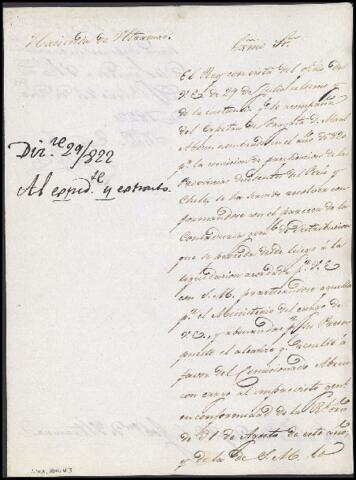 Hacienda de Ultramar
Exmo Sr.
El Rey con vista del oficio de
V.E. de 29 de Julio ultimo y
de la instancia qe. le acompaña
del Capitan de Fragata D. Man.l
Abreu nombrado en el año de 820
pa. la comision de pacificacion de las
Provincias disidentes del Perú y
Chile, se ha servido resolver con
formandose con el parecer de la
Contaduria genl. de Distribucion
que se proceda desde luego á la
liquidacion acordada pr. V.E.
con S.M., practicandose aquella
pr. el Ministerio del cargo de
V.E., y abonandose pr. su Presu
puesto el alcance qe. resulte á
favor del Comisionado Abreu
con cargo al imprevisto genl.
en conformidad de la Rl. orn
de 21 de Agosto de este año,
y de la de S.M. lo
Dir.re 29/822
Al exped.te y extracto